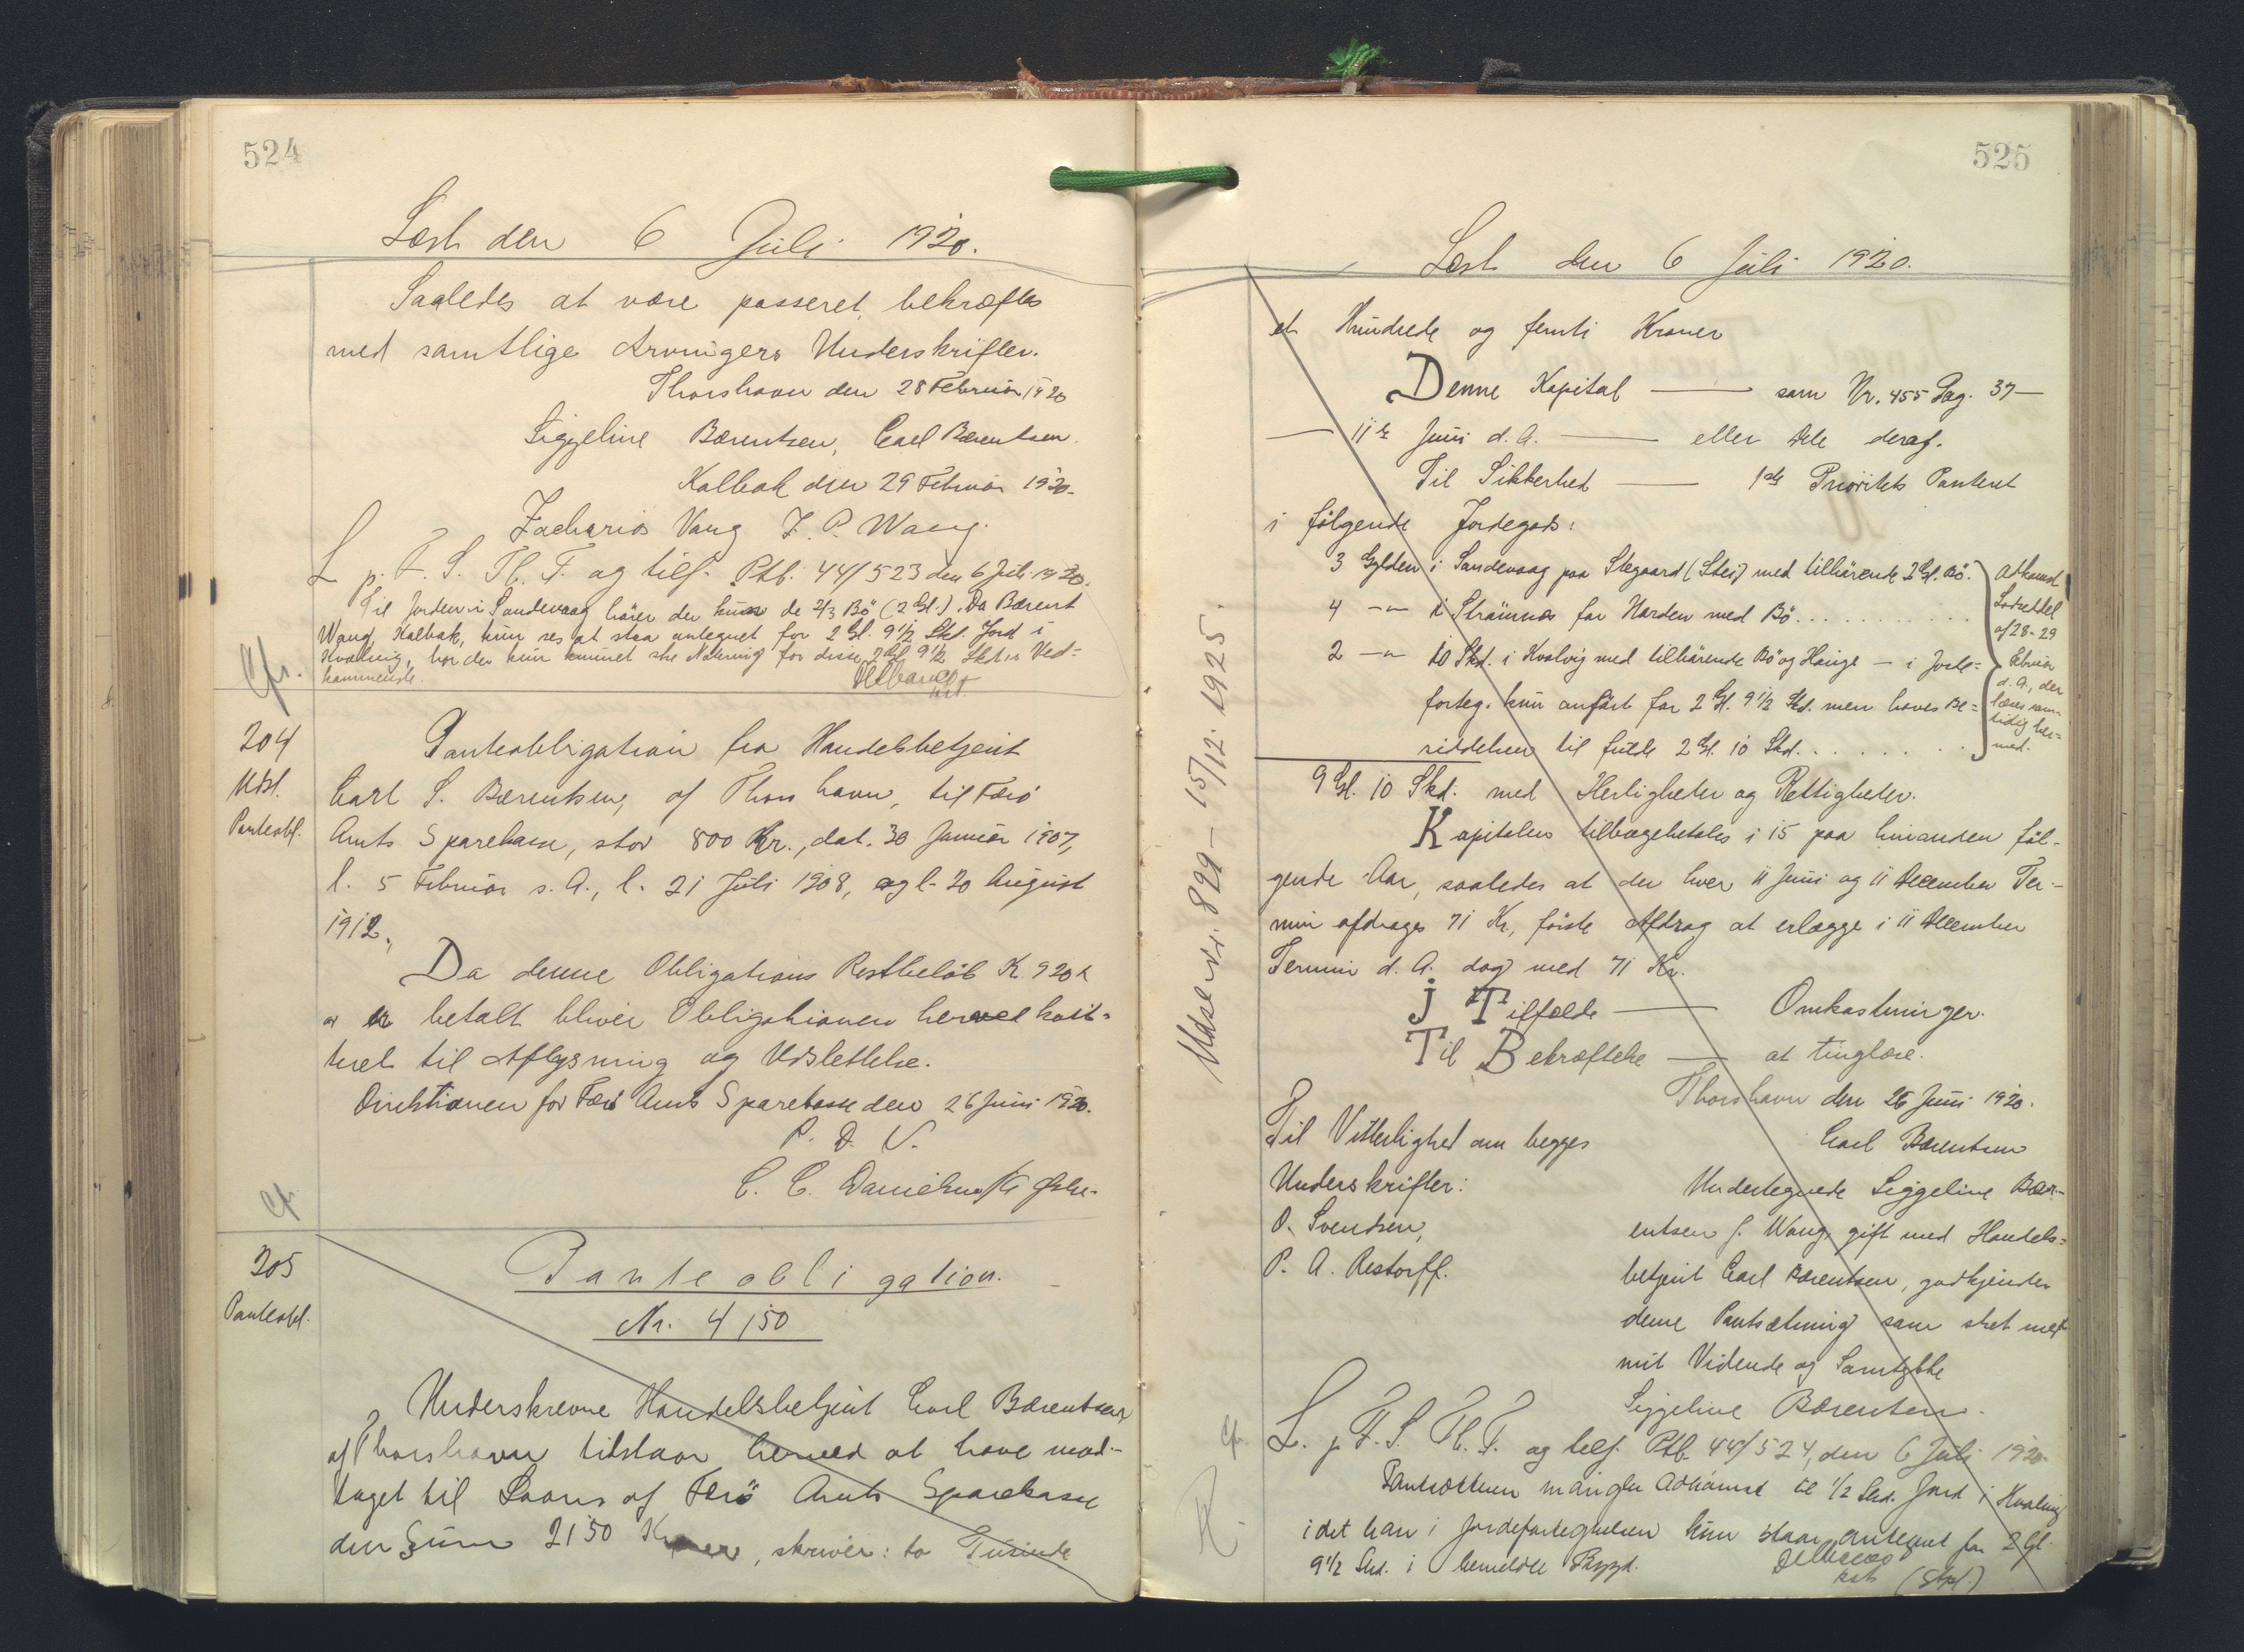 524
Læst den 6 Juli 1920.
Saaledes at være passeret, bekræftes
med samtlige Arvingers Underskrifter.
Thorshavn den 28 Februar 1920
Siggeline Bærentsen, Carl Bærentsen.
Kalbak den 29 Februar 1920.
Zacharias Vang J. P. Wang.
L. p. F. S. Th. T. og tilf. Ptb. 44/523 den 6 Juli 1920.
Til Jorden i Sandevaag hører der kun de 2/3 Bö (2 Gl.). Da Bærent
Wang, Kalbak, kun ses at staa antegnet for 2 Gl. 9 1/2 Skd. Jord i
Hvalvig, har der kun kunnet ske Notering for disse 2 Gl. 9 1/2 Skd. Ved=
kommende.
cfr.
204
Udsl.
Panteobl.
Panteobligation fra Handelsbetjent
Carl S. Bærentsen, af Thorshavn, til Færö
Amts Sparekasse, stor 800 Kr., dat. 30 Januar 1907,
l. 5 Februar s. A., l. 21 Juli 1908, og l. 20 August
1912.
Da denne Obligations Restbelöb Kr. 920
er betalt bliver Obligationen herved kvit=
teret til Aflysning og Udslettelse.
Direktionen for Færö Amts Sparekasse den 26 Juni 1920.
P. D. V.
C. C. Danielsen
cf.
205
Panteobl.
Panteobligation.
Nr. 4150
Underskrevne Handelsbetjent Carl Bærentsen
af Thorshavn tilstaar herved at have mod-
taget til Laans af Færö Amts Sparekasse
den Sum 2150 Kroner, skriver: to Tusinde
525
Læst den 6 Juli 1920.
et Hundrede og femti Kroner
Denne Kapital — som Nr. 455 Pag. 37 —
— 11te Juni d. A. — eller Dele deraf.
Til Sikkerhed — 1ste Prioritets Panteret
i følgende Jordegods:
3 Gylden i Sandevaag paa Stegaard (Stei) med tilhörende 2 Gl. Bö.
4 -"- i Strömnæs for Norden med Bö . . . . . . . . . . .
2 -"- 10 Skd. i Hvalvig med tilhörende Bö og Hauge — i Jorde=
forteg. kun anfört for 2 Gl. 9 1/2 Skd. men haves Be=
siddelsen til fulde 2 Gl. 10 Skd. . . . . . . . .
Adkomst
Lodseddel
af 28-29
Februar
d. A., der
læses sam-
tidig her=
med.
9 Gl. 10 Skd. med Herligheder og Rettigheder.
Kapitalen tilbagebetales i 15 paa hinanden föl-
gende Aar, saaledes at der hver 11 Juni og 11 December Ter-
min afdrages 71 Kr., förste Afdrag at erlægge i 11 December
Termin d. A. dog med 71 Kr.
J Tilfælde — Omkostninger.
Til Bekræftelse — at tinglæse.
Thorshavn den 26 Juni 1920.
Carl Bærentsen
Til Vitterlighed om begges
Underskrifter:
O. Svendsen,
P. A. Restorff.
Undertegnede Siggeline Bær-
entsen f. Wang, gift med Handels=
betjent Carl Bærentsen, godkjender
denne Pantsætning som sket med
mit Vidende og Samtykke
Siggeline Bærentsen.
cfr.
L. p. F. S. Th. T. og tilf. Ptb. 44/524, den 6 Juli 1920.
Pantsætteren mangler Adkomst til 1/2 Skd. Jord i Hvalvig
idet han i Jordefortegnelsen kun staar antegnet for 2 Gl.
9 1/2 Skd. i bemeldte Bygd.
kst. (Stpl.)
Udsl. Nr. 829 - 15/12 1925.